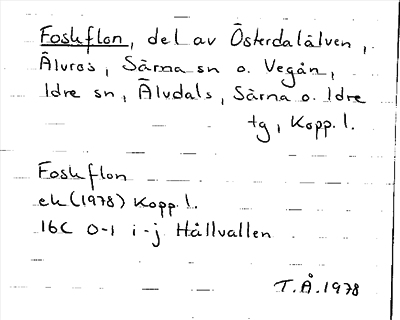 Foskflon, del av Österdalälven,
Älvros, Särna sn o. Vegån,
Idre sn, Älvdals, Särna o. Idre
tg, Kopp. l.
Foskflon
ek (1978) Kopp l.
16C 0-1 i-j Hållvallen
T.Å. 1978